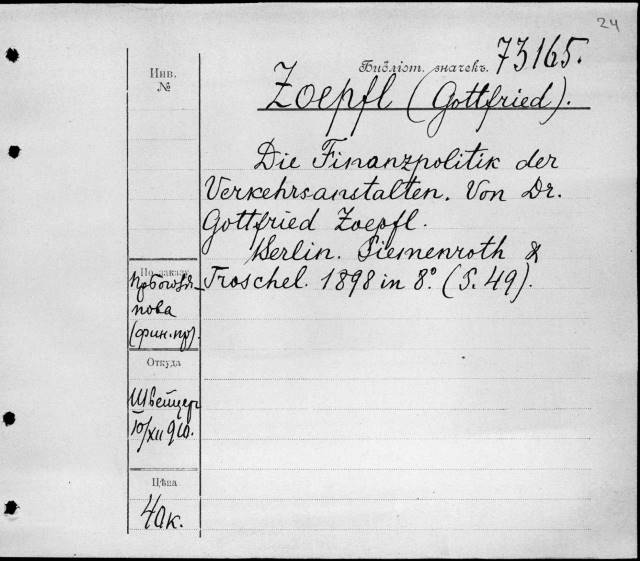 24
Инв.
№
Библіот. значекъ. 73165.
Zoepfl (Gottfried).
Die Finanzpolitik der
Verkehrsanstalten. Von Dr.
Gottfried Zoepfl.
Berlin. Siemenroth &
Troschel. 1898 in 8º. (S. 49).
По заказу
пова
(фин. пр).
Откуда
Швейцер
10/XII 910.
Цѣна
40 к.